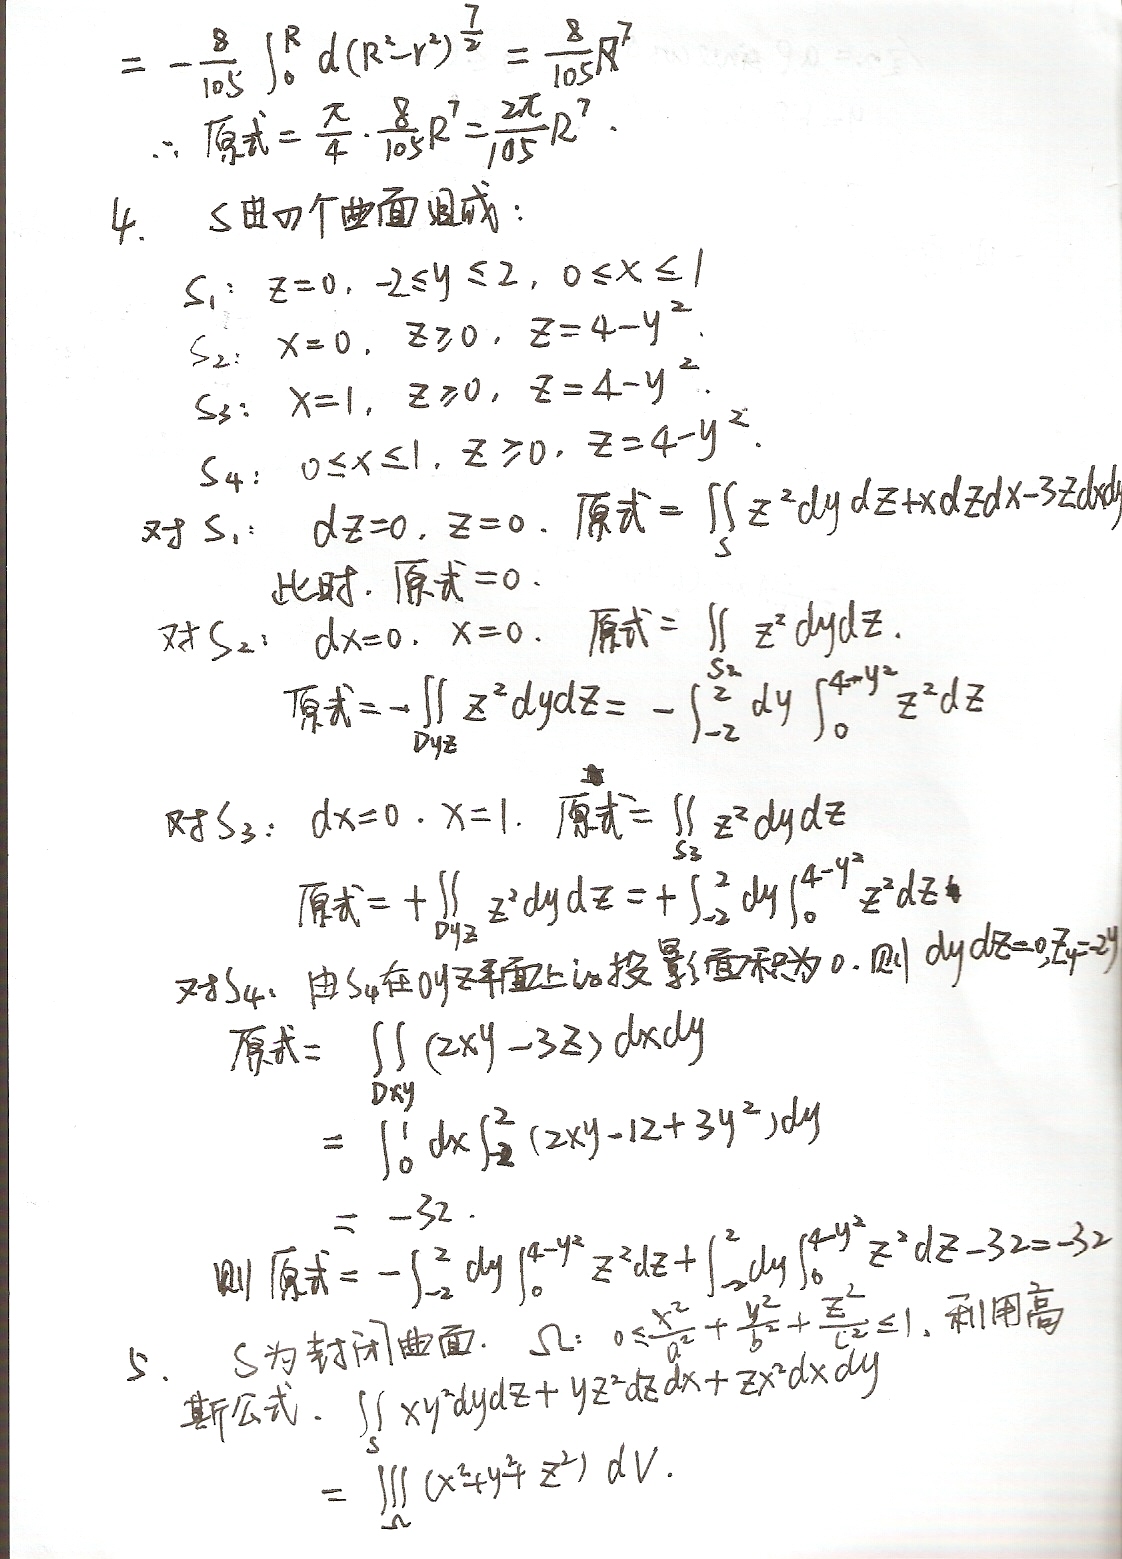 = -\frac{8}{105} \int_0^R d(R²-r²)^{\frac{7}{2}} = \frac{8}{105}R^7
∴ 原式 = \frac{π}{4} · \frac{8}{105}R^7 = \frac{2π}{105}R^7.
4. S由四个曲面组成:
S₁: z=0, -2≤y≤2, 0≤x≤1
S₂: x=0, z≥0, z=4-y².
S₃: x=1, z≥0, z=4-y².
S₄: 0≤x≤1, z≥0, z=4-y².
对S₁: dz=0, z=0. 原式 = ∬_S z²dydz+xdzdx-3zdxdy
此时. 原式=0.
对S₂: dx=0. x=0. 原式= ∬_{S₂} z²dydz.
原式=-∬_{Dyz} z²dydz = -∫_{-2}^{2} dy ∫_0^{4-y²} z²dz
对S₃: dx=0. x=1. 原式= ∬_{S₃} z²dydz
原式= +∬_{Dyz} z²dydz = +∫_{-2}^{2} dy ∫_0^{4-y²} z²dz
对S₄: 由S₄在oyz平面上的投影面积为0. 则 dydz=0, Zy=-2y
原式= ∬_{Dxy} (2xy-3z) dxdy
= ∫_0^1 dx ∫_{-2}^{2} (2xy-12+3y²)dy
= -32.
则原式= -∫_{-2}^{2} dy ∫_0^{4-y²} z²dz + ∫_{-2}^{2} dy ∫_0^{4-y²} z²dz -32=-32
5. S为封闭曲面. Ω: 0≤\frac{x²}{a²}+\frac{y²}{b²}+\frac{z²}{c²}≤1, 利用高
斯公式. ∬_S xy²dydz+yz²dzdx+zx²dxdy
= ∭_Ω (x²+y²+z²) dV.